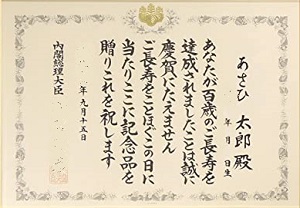 あさひ 太郎 殿
年 月 日生
あなたが百歳のご長寿を
達成されましたことは誠に
慶賀にたえません
ご長寿をことほぐこの日に
当たりここに記念品を
贈りこれを祝します
年九月十五日
内閣総理大臣